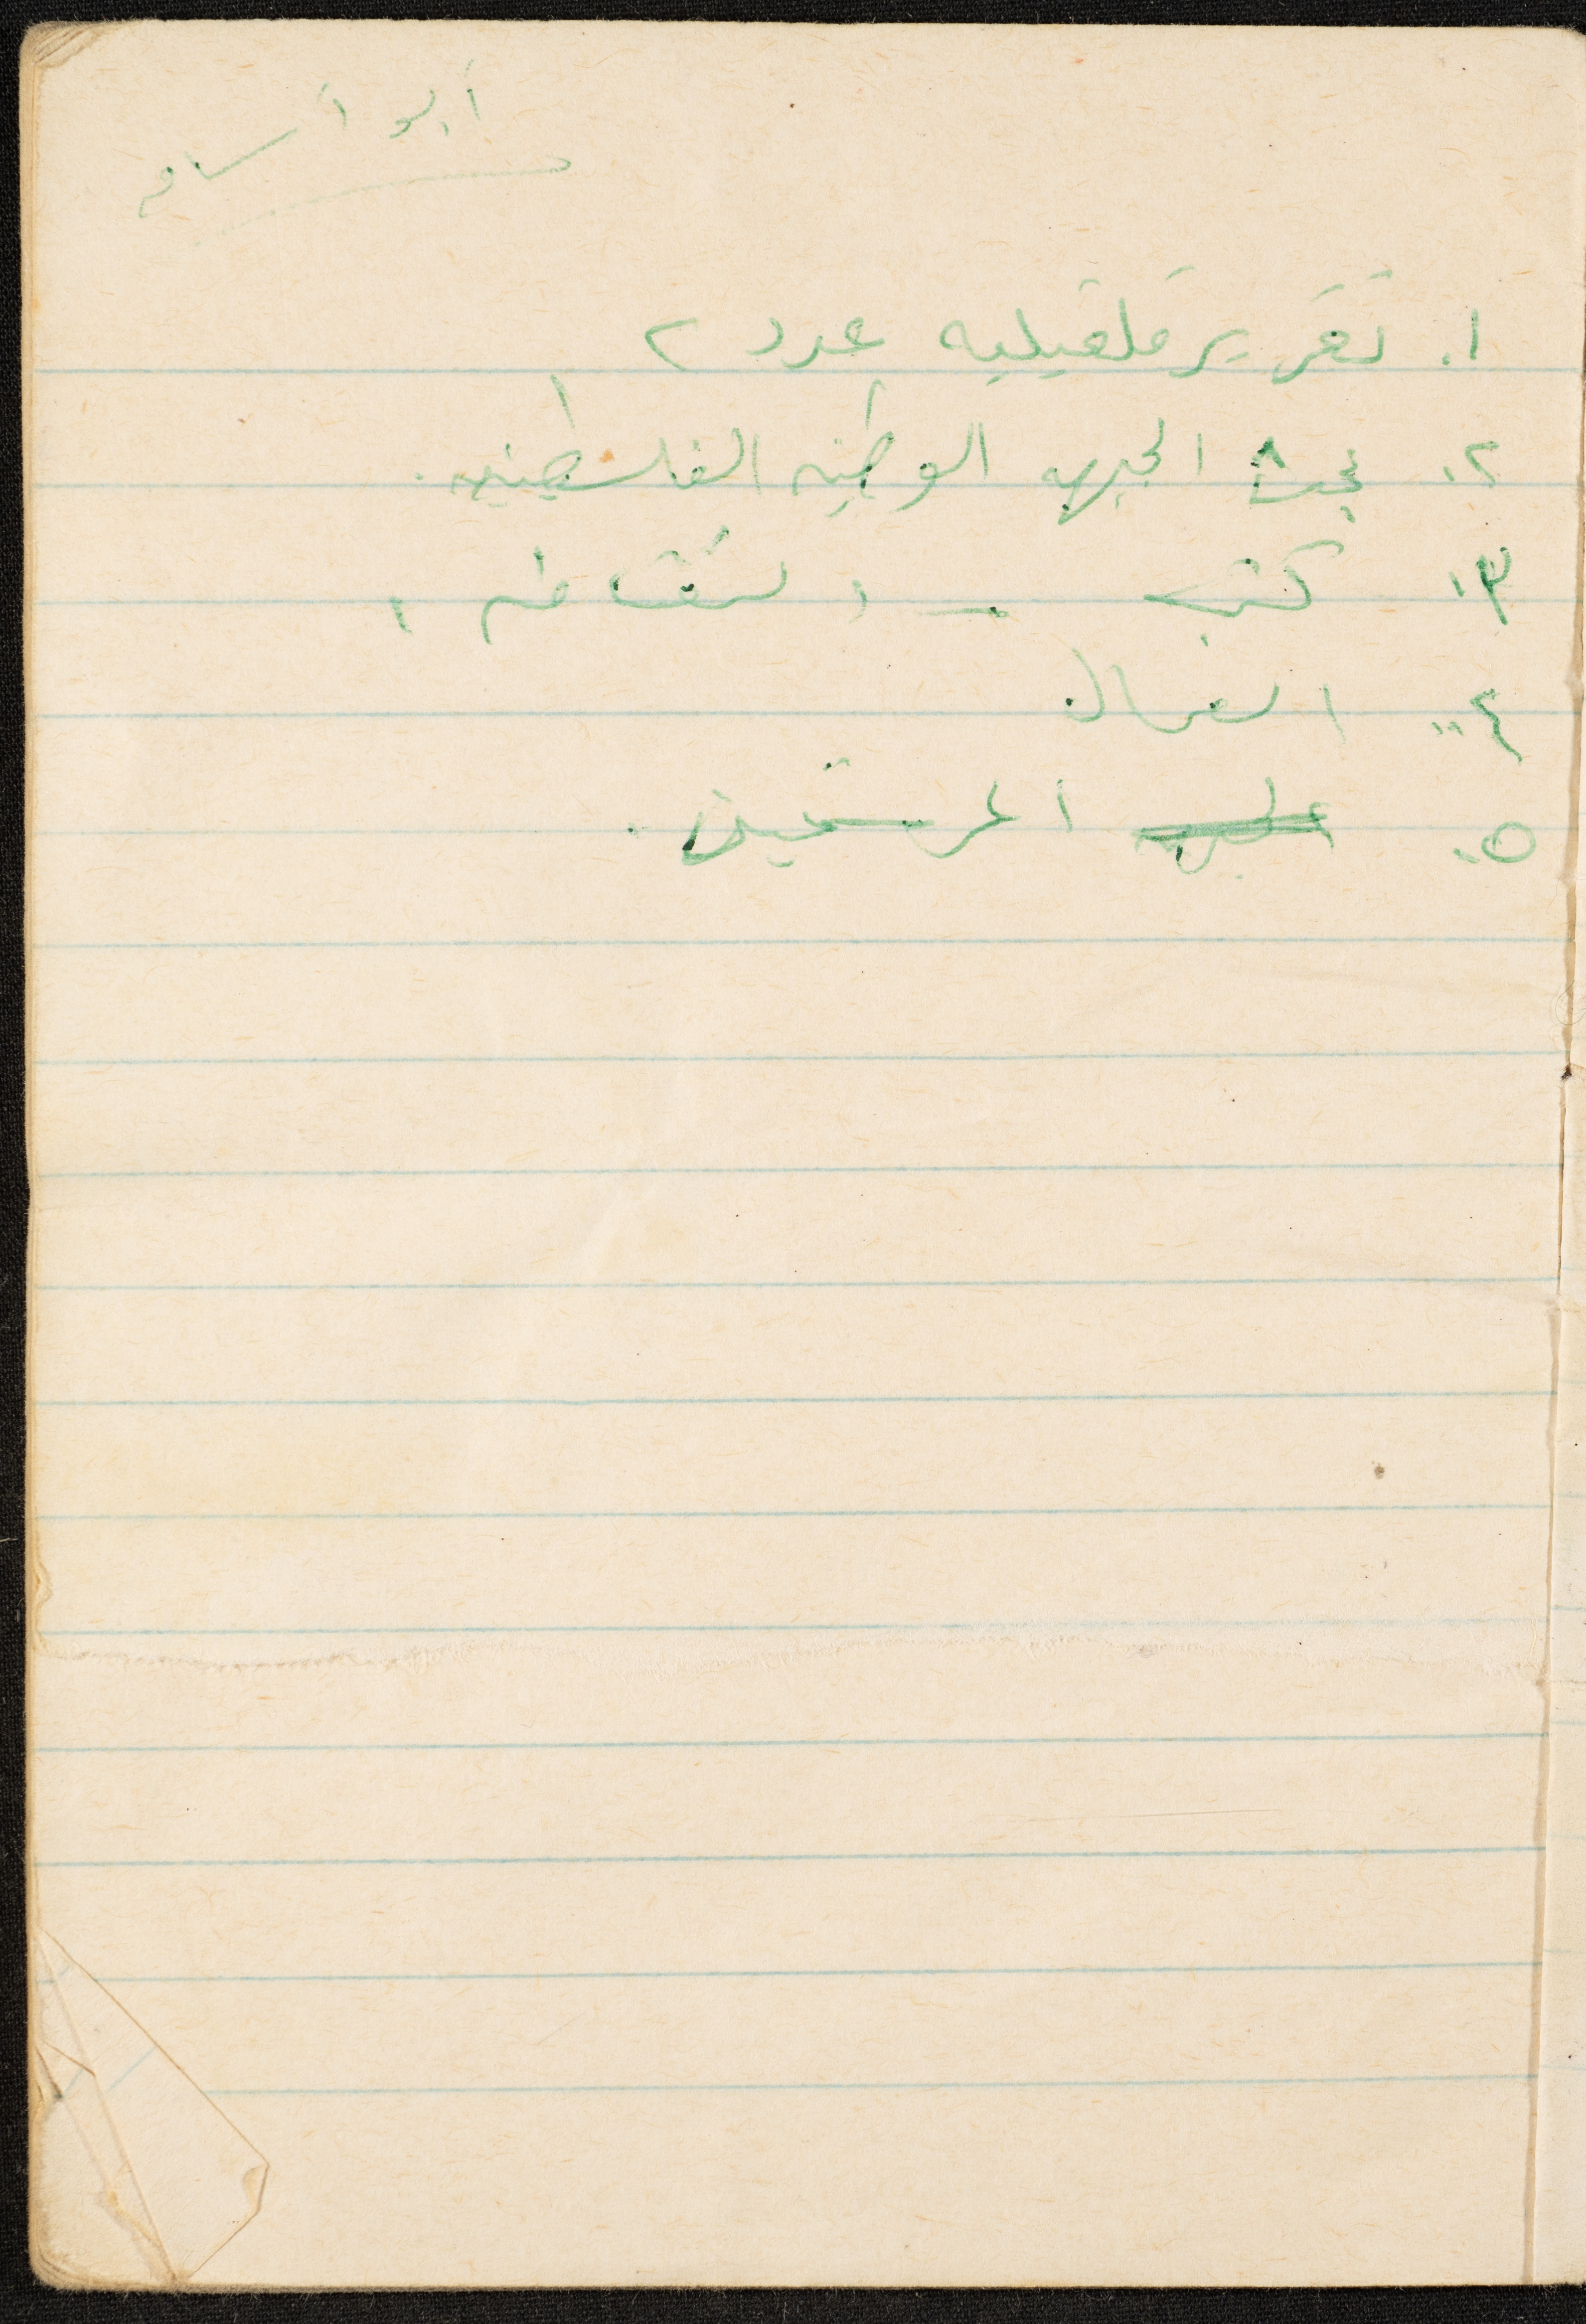 أبو أسامه
١. تقرير قلقيليه عدد ٢
٢. بحث الجبهه الوطنيه الفلسطينيه.
٣. كتب - الثقافه
٤. العمال
٥. المرشحين.